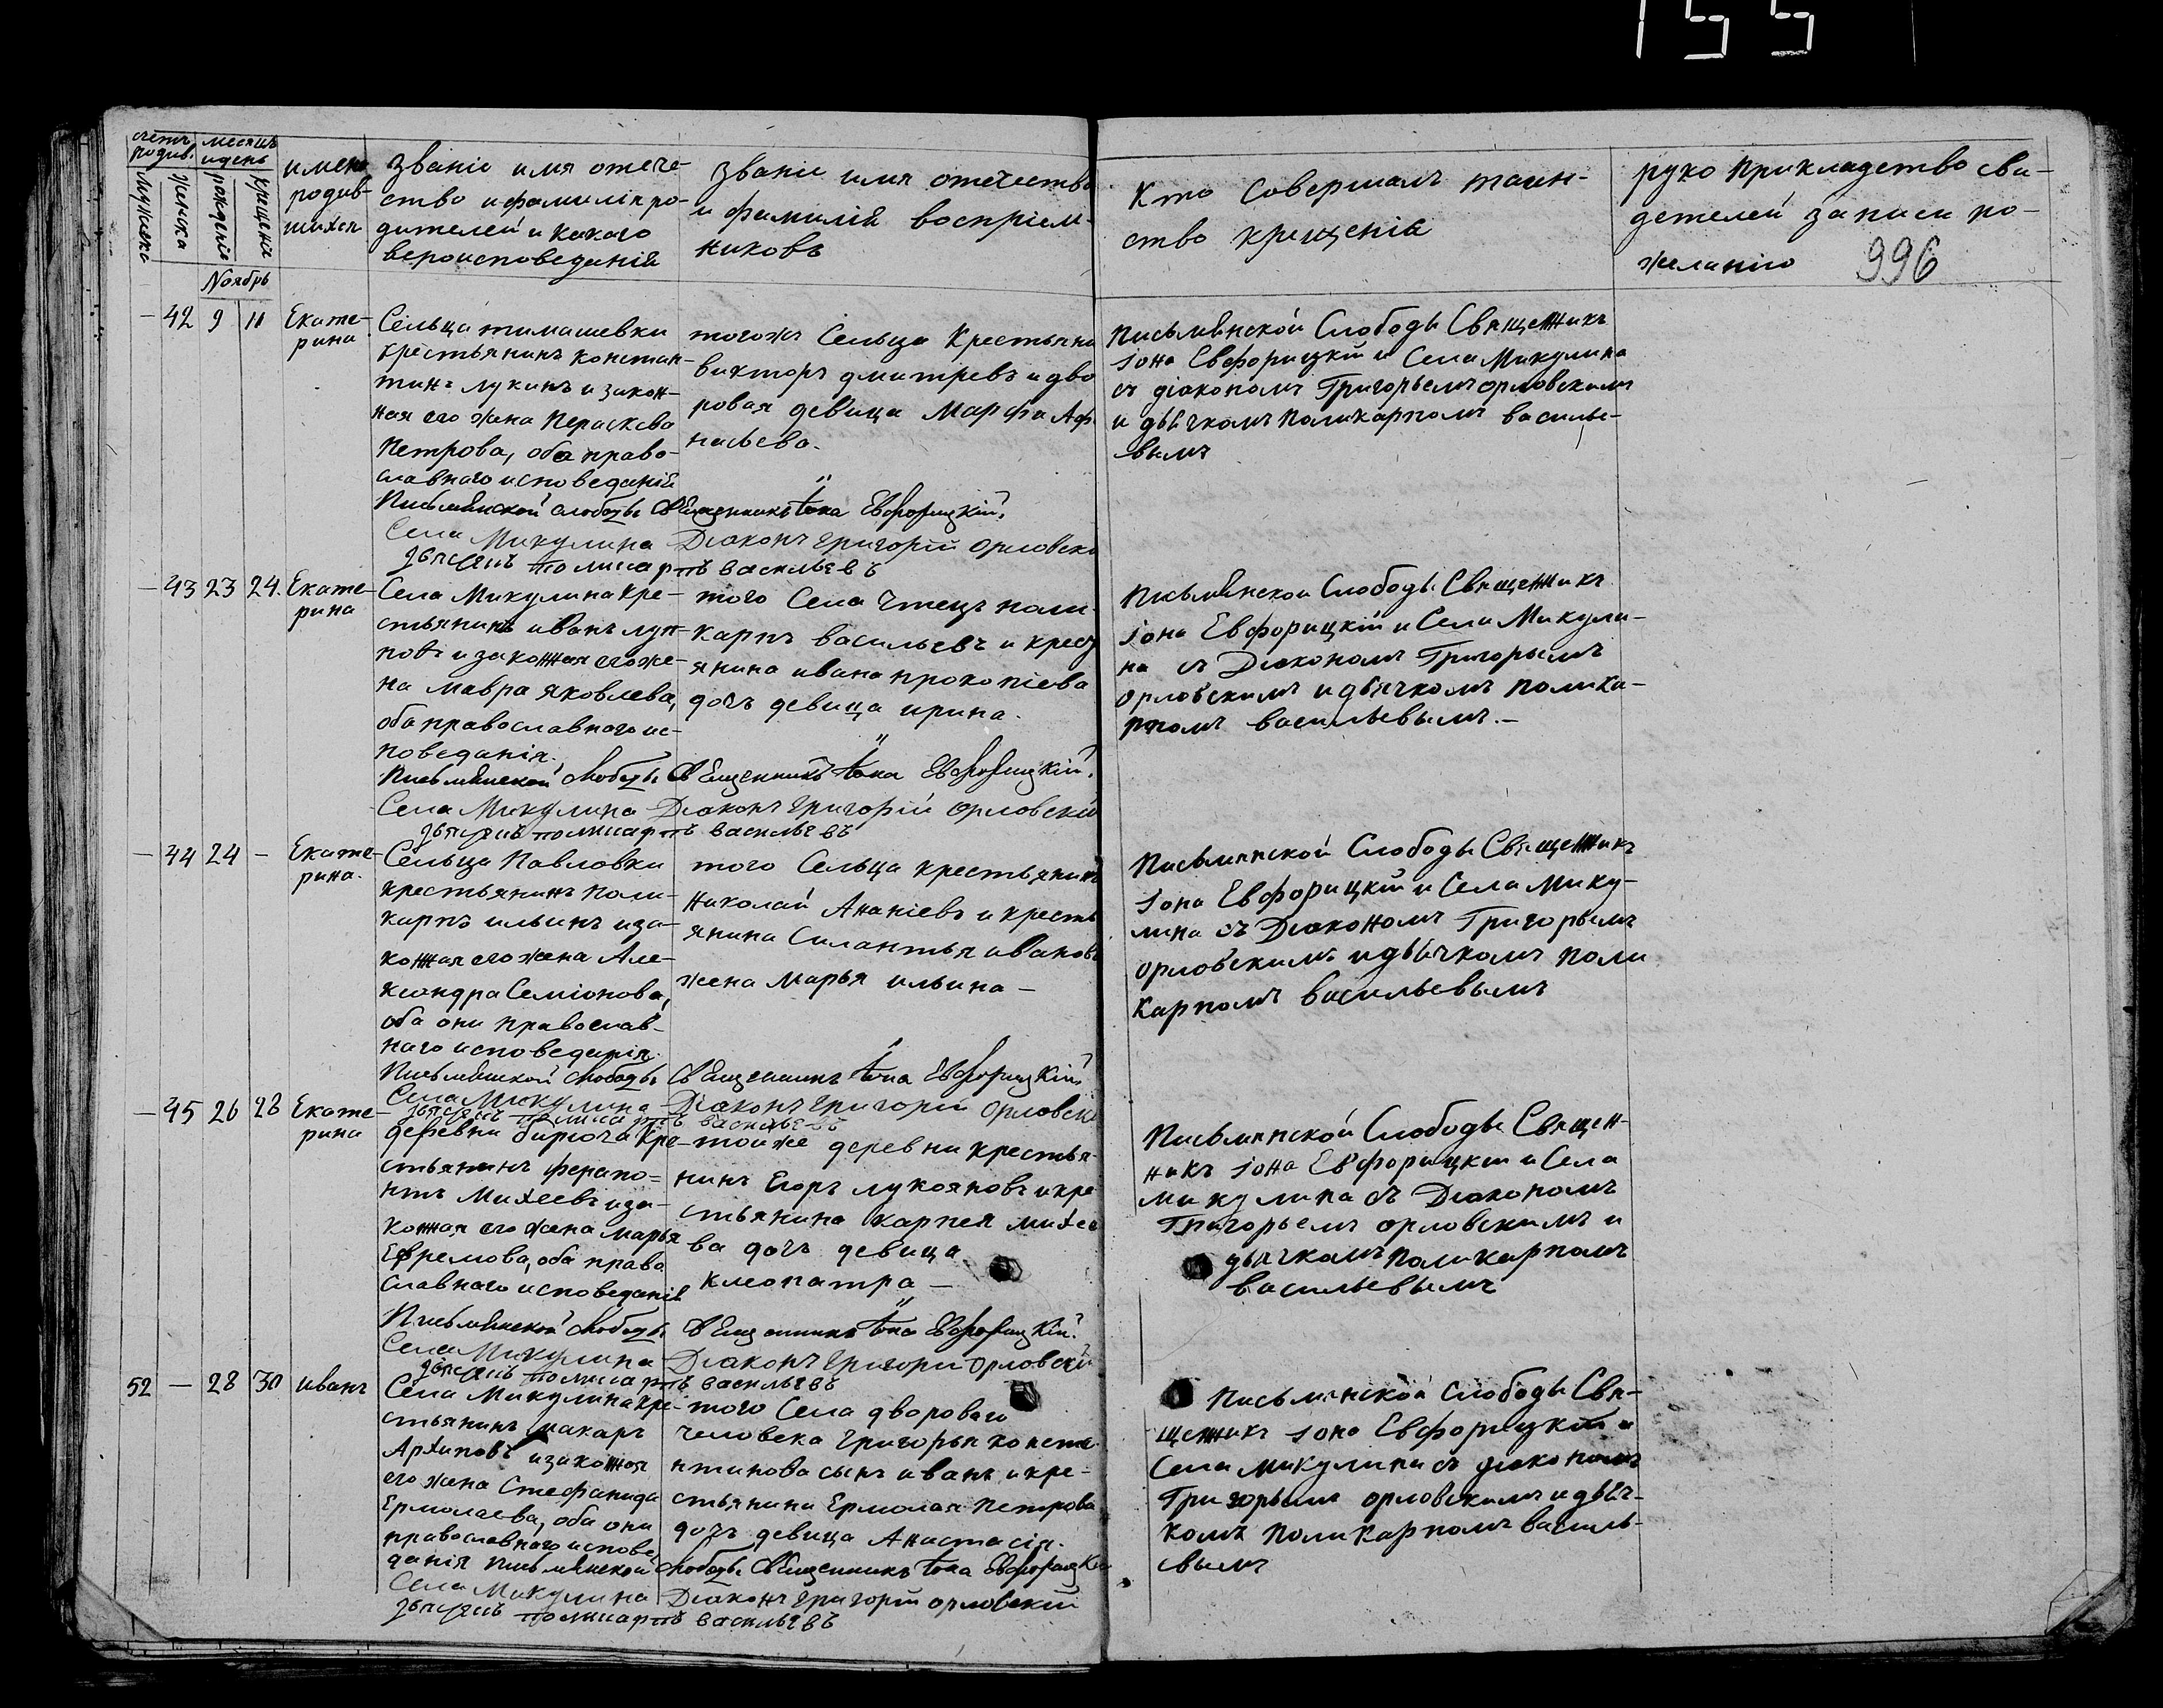 155
996
счетъ родив.
месяцъ и день
мужеска
женска
рожденiя
крещенiя
имена родив-
шихся
Званiе имя отече-
ство и фамилiя ро-
дителей и какого
вероисповеданiя
Званiе имя отечество
и фамилiя воспрiем-
никовъ
Кто Совершалъ таин-
ство крещенiя
руко прикладство сви-
детелей записи по-
желанiю
Ноябрь
— 42 9 11 Екате-
рина
Сельца тимашевки
крестьянинъ констан-
тинъ лукинъ и закон-
ная его жена Пераскева
Петрова, оба право-
славнаго исповеданiя
тогожъ Сельца Крестьянин
викторъ дмитревъ и дво
ровая девица Марфа Аф
насьева.
Письмянской Слободы Священникъ
Iона Евфорицкiй и Села Микулина
съ дiакономъ Григорьемъ орловскимъ
и дьячкомъ Поликарпомъ василье-
вымъ
Письмянской слободы Священникъ Iона Евфорицкiй.
Села Микулина Дiаконъ Григорiй Орловск
дьячекъ поликарпъ васильевъ
— 43 23 24 Екате-
рина
Села Микулина кре-
стьянинъ иванъ луп-
повъ и законная его же-
на мавра яковлева,
оба православнаго ис-
поведанiя.
того Села Чтецъ поли-
карпъ васильевъ и крест
янина ивана прокопiева
дочь девица ирина.
Письмянской Слободы Священникъ
Iона Евфорицкiй и Села Микули-
на съ Дiакономъ Григорьемъ
орловскимъ и дьячкомъ полика-
рпомъ васильевымъ.—
Письмянской слободы Священникъ Iона Евфорицкiй.
Села Микулина Дiаконъ Григорiй Орловскiй
дьячекъ поликарпъ васильевъ
— 44 24 — Екате-
рина.
Сельца Павловки
крестьянинъ Поли-
карпъ ильинъ и за-
конная его жена Але-
ксандра Семiонова,
оба они православ-
наго исповеданiя.
того Сельца крестьянинъ
Николай Ананiевъ и кресть
янина Силантья иванов
жена Марья ильина —
Письмянской Слободы Священникъ
Iона Евфорицкiй и Села Мику-
лина съ Дiакономъ Григорьемъ
орловскимъ и дьячкомъ Поли
карпомъ васильевымъ
Письмянской слободы Священникъ Iона Евфорицкiй
Села Микулина Дiаконъ Григорiй Орловск
дьячекъ поликарпъ васильевъ
— 45 26 28 Екате-
рина
деревни бирюча кре-
стьянинъ ферапо=
нтъ Михеевъ и за-
конная его жена марья
Ефремова, оба права
славнаго исповеданiя
тойже деревни крестья-
нинъ Егоръ лукояновъ и кре
стьянина карпея михее
ва дочь девица
клеопатра —
Письмянской Слободы Священ-
никъ Iона Евфорицкiй и Села
микулина съ Дiакономъ
Григорьемъ орловскимъ и
дьячкомъ Поликарпомъ
васильевымъ
Письмянской слободы Священникъ Iона Евфорицкiй.
Села Микулина Дiаконъ Григорiй Орловскiй
дьячекъ поликарпъ васильевъ
52 — 28 30 иванъ
Села Микулина кре-
стьянинъ макаръ
Архиповъ и законная
его жена Стефанида
Ермолаева, оба они
православнаго испове
данiя
того Села двороваго
человека Григорья конста
нтинова сынъ иванъ и кре-
стьянина Ермолая Петрова
дочь девица Анастасiя.
Письмянской Слободы Свя-
щенникъ Iона Евфорицкiй и
Села микулина съ дiакономъ
Григорьемъ орловскимъ и дьяч-
комъ Поликарпомъ василь-
евымъ
Письмянской слободы Священникъ Iона Евфорицкiй
Села Микулина Дiаконъ Григорiй орловскiй
дьячекъ поликарпъ васильевъ